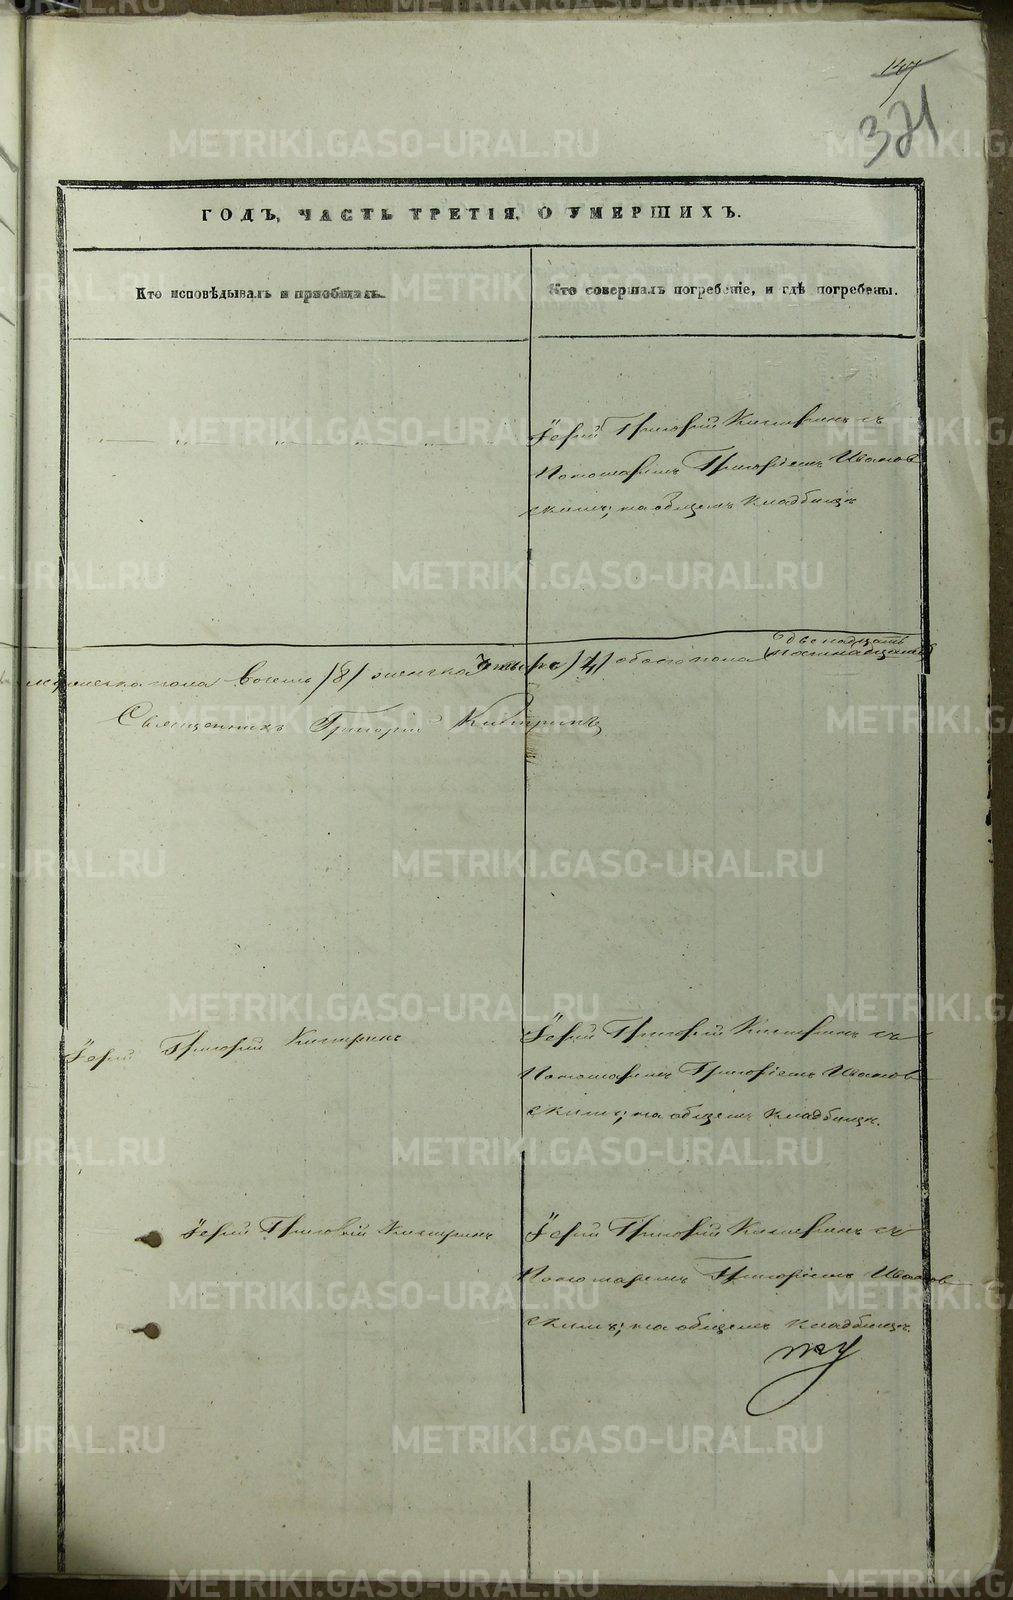 147
321
ГОДЪ, ЧАСТЬ ТРЕТІЯ, О УМЕРШИХЪ.
Кто исповѣдывалъ и пріобщалъ.
Кто совершалъ погребеніе, и гдѣ погребены.
Іерей Григорій Кипринъ съ
Пономаремъ Григоріемъ Иванов
скимъ; на общемъ кладбищѣ
мужеска пола восемь /8/ женска четыре /4/ обоего пола двенадцать
Священникъ Григорій
Іерей Григорій
Іерей Григорій съ
Пономаремъ Григоріемъ Иванов
скимъ; на общемъ кладбищѣ.
Іерей Григорій
Іерей Григорій съ
Пономаремъ Григоріемъ Иванов
скимъ; на общемъ кладбищѣ.
METRIKI.GASO-URAL.RU